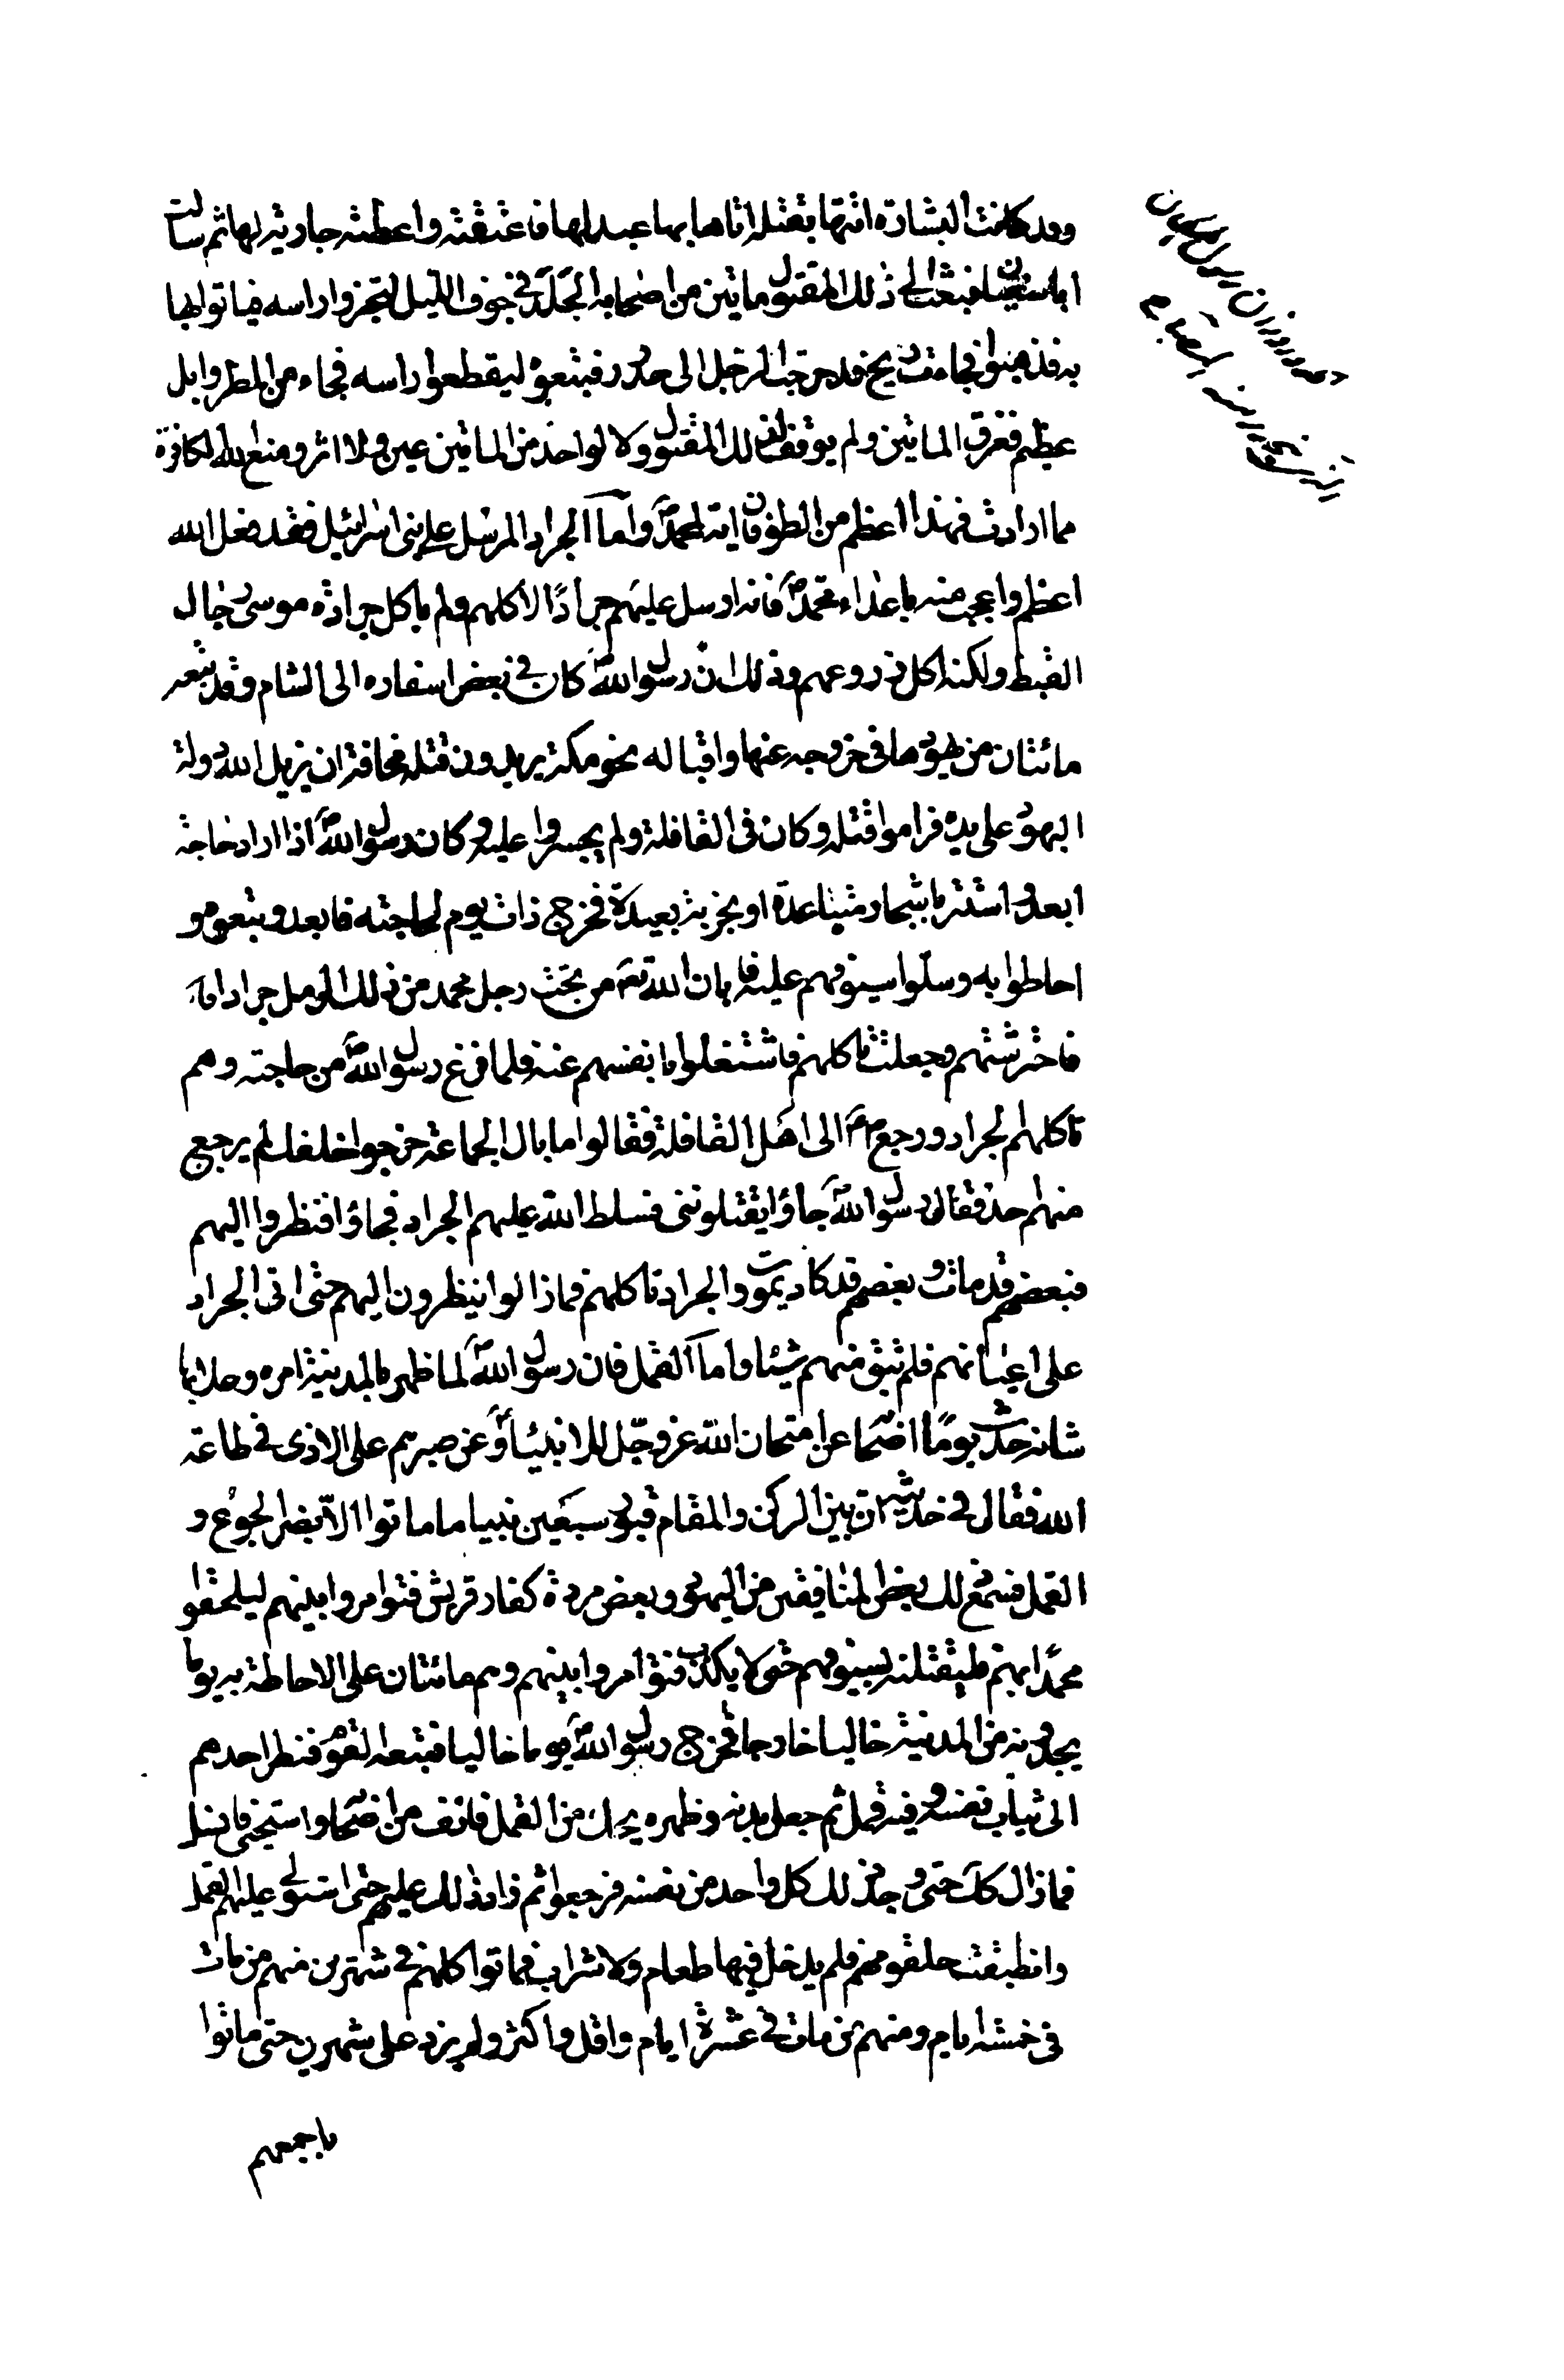 وقد كانت البشارة اتتها بقتله اتاها بها عبد لها فاعتقته واعطته جارية لها ثم سالت
ابا سفيان فبعث الى ذلك المقتول ماتين من اصحابه الجلد في جوف الليل ليجتزوا راسه فياتوا لها
به فذهبوا فجاءت ريح فدحرجت الرجل الى حدور فتبعوه ليقطعوا راسه فجاء من المطر وابل
عظيم فغرق الماتين ولم يوقف لذلك المقتول ولا لواحد من الماتين عين ولا اثر ومنع الله الكافرة
مما ارادت فهذا اعظم من الطوفان اية لمحمد ص واما الجراد المرسل على بنى اسرائيل فقد فعل الله
اعظم واعجب منه باعداء محمد ص فانه ارسل عليهم جرادًا لاكلهم ولم ياكل جراد موسى رجال
القبط ولكنه اكل زروعهم وذلك ان رسول الله ص كان في بعض اسفاره الى الشام وقد تبعه
مائتان من يهودها في خروجه عنها واقباله نحو مكة يريدون قتله مخافة ان يزيل الله دولة
اليهود على يده فراموا قتله وكان في القافلة ولم يجسروا عليه وكان رسول الله ص اذا اراد حاجة
ابعد واستتر باشجار متباعدة او بخربة بعيدة فخرج ذات يوم لحاجته فابعد وتبعوه و
احاطوا به وسلوا سيوفهم عليه فابان الله تع من تحت رجل محمد من ذلك الرمل جرادا
فاحترشتهم وجعلت تاكلهم فاشتغلوا بانفسهم عنه فلما فرغ رسول الله ص من حاجته وهم
تاكلهم الجراد ورجع ص الى اهل القافلة فقالوا ما بال الجماعة خرجوا خلفك لم يرجع
منهم احد فقال رسول الله ص جاؤا يقتلوننى فسلط الله عليهم الجراد فجاؤا فنظروا اليهم
فبعضهم قد مات وبعضهم قد كاد يموت والجراد تاكلهم فمازالوا ينظرون اليهم حتى اتى الجراد
على اعيانهم فلم تبق منهم شيئا واما القمل فان رسول الله ص لما ظهر بالمدينة امره وعلا بها
شانه حدث يومًا اصحابه عن امتحان الله عز وجل للانبياء وعن صبرهم على الاذى في طاعة
الله فقال في حديثه ان بين الركن والمقام قبور سبعين نبيا ما ماتوا الا بضر الجوع و
القمل فسمع ذلك بعض المنافقين من اليهود وبعض مردة كفار قريش فتوامروا بينهم ليلحقوا
محمدًا بهم فليقتلنه بسيوفهم حتى لا يكذب فتوامروا بينهم وهم مائتان على الاحاطة به يوما
يجدونه من المدينة خاليا خارجا فخرج رسول الله ص يوما خاليا فتبعه القوم فنظر احدهم
الى ثياب نفسه وفيه قمل ثم جعل بدنه وظهره يحك من القمل فانف من اصحابه واستحيى فانسل
فمازال كك حتى وجد ذلك كل واحد من نفسه فرجعوا ثم زاد ذلك عليهم حتى استولى عليهم القمل
وانطبقت حلوقهم فلم يدخل فيها طعام ولا شراب فماتوا كلهم في شهرين منهم من مات
في خمسة ايام ومنهم من مات في عشرة ايام واقل واكثر ولم يزد على شهرين حتى ماتوا
باجمعهم